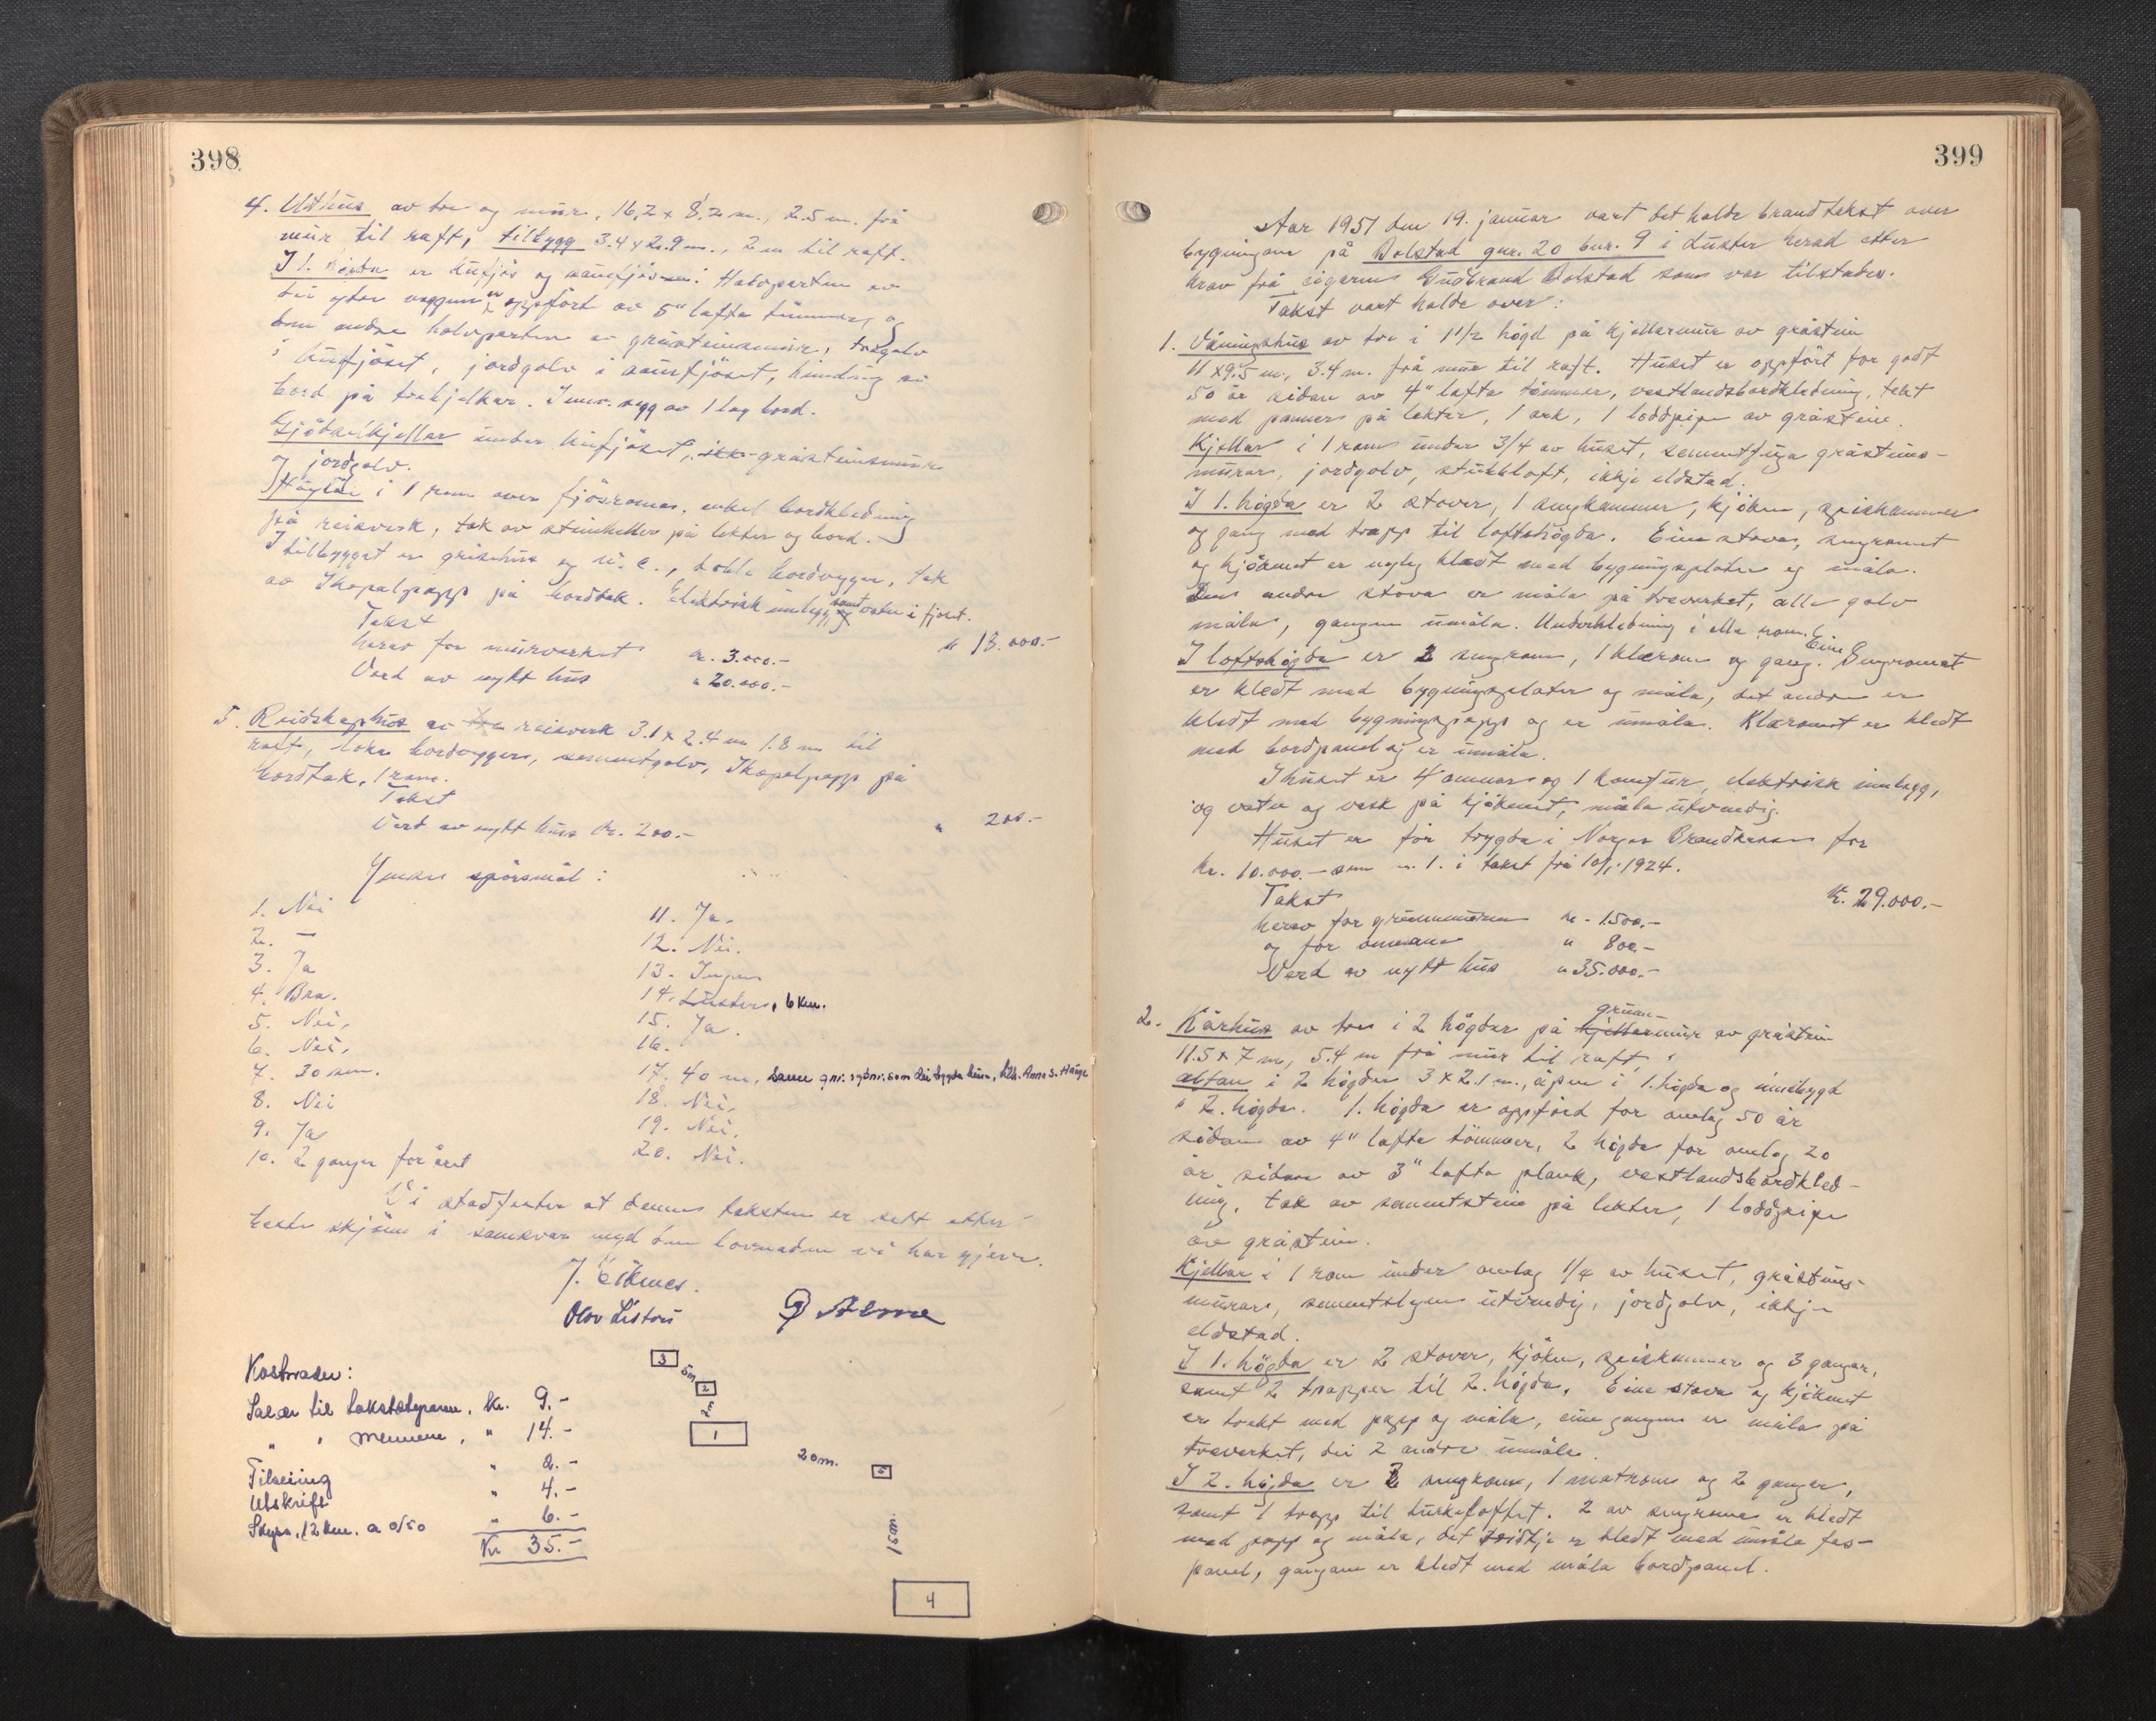 398
4. Uthus av tre og mur, 16,2 x 8,2 m., 2.5 m. frå
mur til raft, tilbygg 3.4 x 2.9 m., 2 m til raft.
I 1. høgda er kufjøs og sauefjøs. Halvparten av
dei ytre veggene er oppført av 5" lafta tømmer, og
den andre halvparten av gråsteinsmur, tregolv
i kufjøset, jordgolv i sauefjøset, himling av
bord på trebjelkar. Innv. vegg av 1 lag bord.
Gjødselkjellar under kufjøset, gråsteinsmurar
og jordgolv.
Høylåe i 1 rom over fjøsromma, enkel bordkledning
på reisverk, tak av steinheller på lekter og bord.
I tilbygget er grisehus og u. c., doble bordvegger, tak
av Ikopalpapp på bordtak. Elektrisk innlegg samt vatn i fjøset.
Takst " 18.000.-
herav for murverket kr. 3.000.-
Verd av nytt hus " 20.000.-
5. Reidskaphus av reisverk 3.1 x 2.4 m 1.8 m til
raft, bordvegger, sementgolv, Ikopalpapp på
bordtak, 1 rom.
Takst " 200.-
Verd av nytt hus kr. 200.-
Ymse spørsmål:
1. Nei
2. —
3. Ja
4. Bra.
5. Nei.
6. Nei.
7. 30 cm.
8. Nei
9. Ja
10. 2 ganger for året
11. Ja.
12. Nei.
13. Ingen
14. Luster, 6 km.
15. Ja.
16.
17. 40 m, same gnr. og bnr. som dei tygda husa, tilh. Anna S. Hauge
18. Nei.
19. Nei.
20. Nei.
Vi stadfester at denne taksten er sett etter
beste skjønn i samsvar med den lovnaden vi har gjeve.
J. Eikmes.
Olav Liston
Kostnader:
Salær til takststyraren, kr. 9.-
" " mennene, " 14.-
Tilseiing " 2.-
Utskrift " 4.-
Skyss, 12 km. a 0/50 " 6.-
Kr 35.-
3
5m
2
7m
1
20m.
5
15m.
4
399
Aar 1951 den 19. januar vart det halde brandtakst over
bygningane på Bolstad gnr. 20 bnr. 9 i Luster herad etter
krav frå eigaren Gudbrand Bolstad som var tilstades.
Takst vart halde over:
1. Våningshus av tre i 1 1/2 høgd på kjellarmur av gråstein
11 x 9.5 m, 3.4 m. frå mur til raft. Huset er oppført for godt
50 år sidan av 4" lafta tømmer, vestlandsbordkledning, tekt
med panner på lekter, 1 ark, 1 loddpipe av gråstein.
Kjellar i 1 rom under 3/4 av huset, sementfuga gråsteins-
murar, jordgolv, stubbloft, ikkje eldstad.
I 1. høgda er 2 stover, 1 sengkammer, kjøken, speiskammer
og gang med trapp til loftshøgda. Eine stova, sengromet
og kjøkenet er nyleg kledt med bygningsplater og måla.
Den andre stova er måla på treverket, alle golv
måla, gangen umåla. Underkledning i alle rom.
I loftshøgda er 2 sengrom, 1 klærom og gang. Eine Sengromet
er kledt med bygningsplater og måla, det andre er
kledt med bygningspapp og er umåla. Klæromet er kledt
med bordpanel og er umåla.
I huset er 4 omnar og 1 komfur, elektrisk innlegg,
og vatn og vask på kjøkenet, måla utvendig.
Huset er før trygda i Norges Brandkasse for
kr. 10.000.- som nr. 1. i takst frå 10/1. 1924.
Takst kr. 29.000.-
herav for grunnmuren kr. 1500.-
og for omnane " 800.-
Verd av nytt hus " 35.000.-
2. Kårhus av tre i 2 høgder på grunnmur av gråstein
11.5 x 7 m, 5.4 m frå mur til raft,
altan i 2 høgder 3 x 2.1 m., åpen i 1. høgda og innebygd
i 2. høgda. 1. høgda er oppførd for omlag 50 år
sidan av 4" lafta tømmer, 2 høgda for omlag 20
år sidan av 3" lafta plank, vestlandsbordkled-
ning, tak av sementstein på lekter, 1 loddpipe
av gråstein.
Kjellar i 1 rom under omlag 1/4 av huset, gråsteins-
murar, utvendig, jordgolv, ikkje
eldstad.
I 1. høgda er 2 stover, kjøken, speiskammer og 3 gangar,
samt 2 trapper til 2. høgda. Eine stova og kjøkenet
er trekt med papp og måla, eine gangen er måla på
treverket, dei 2 andre umåla.
I 2. høgda er 3 sengrom, 1 matrom og 2 ganger,
samt 1 trapp til turkeloftet. 2 av sengromma er kledt
med papp og måla, det tridtje er kledt med umåla fas-
panel, gangane er kledt med måla bordpanel.